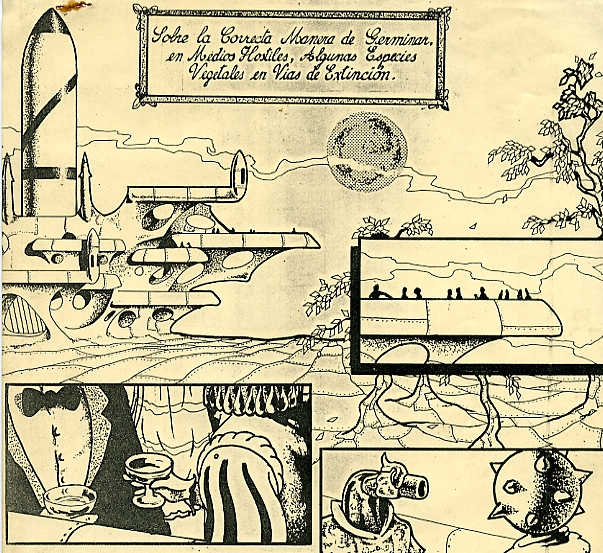 Sobre la Correcta Manera de Germinar,
en Medios Hostiles, Algunas Especies
Vegetales en Vías de Extinción.